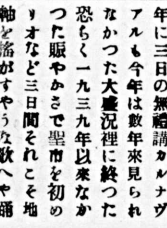 年に三日の無禮講カルナヴ
アルも今年は數年來見られ
なかつた大盛況裡に終つた
恐らく一九三九年以來なか
つた賑やかさで聖市を初め
リオなど三日間それこそ地
軸を搖がすやうな歌へや踊